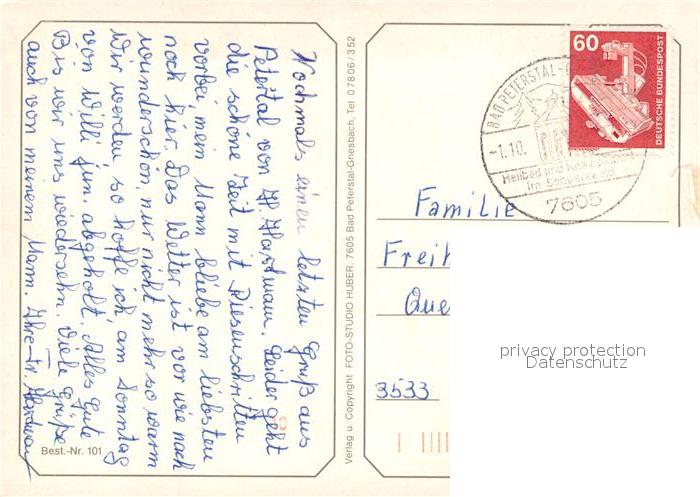 Nochmals einen letzten Gruß aus
Petertal von H. Hartmann. Leider geht
die schöne Zeit mit Riesenschritten
vorbei, mein Mann bliebe am liebsten
noch hier. Das Wetter ist vor wie nach
wunderschön, nur nicht mehr so warm
Wir werden so hoffe ich am Sonntag
von Willi jun abgeholt. Alles Gute
Bis wir uns wiedersehn. Viele Grüße
auch von meinem Mann. Ihre Fr.
Best.-Nr. 101
Verlag u. Copyright FOTO-STUDIO HUBER, 7605 Bad Peterstal-Griesbach, Tel 07806/352
60
DEUTSCHE BUNDESPOST
BAD PETERSTAL-G
-1.10.
Heilbad und Kneipp
im Schwarzwald
7605
Familie
Freih
Que
3533
privacy protection
Datenschutz